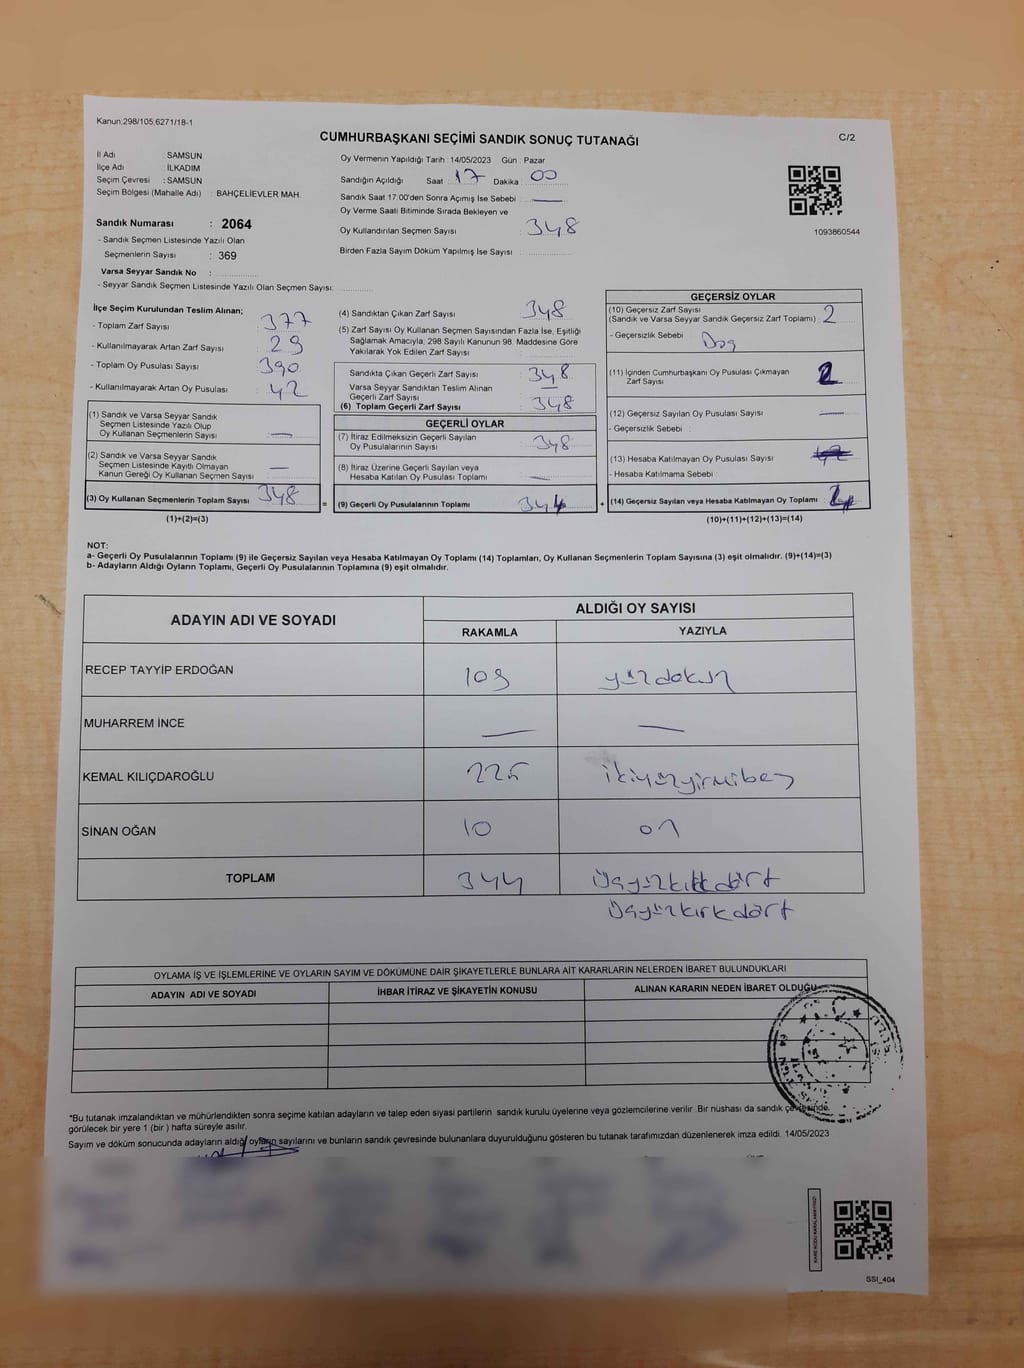 Kanun:298/105,6271/18-1
CUMHURBAŞKANI SEÇİMİ SANDIK SONUÇ TUTANAĞI
C/2
İl Adı : SAMSUN
İlçe Adı : İLKADIM
Seçim Çevresi : SAMSUN
Seçim Bölgesi (Mahalle Adı) : BAHÇELİEVLER MAH.
Sandık Numarası : 2064
- Sandık Seçmen Listesinde Yazılı Olan
Seçmenlerin Sayısı : 369
Varsa Seyyar Sandık No :
- Seyyar Sandık Seçmen Listesinde Yazılı Olan Seçmen Sayısı:
Oy Vermenin Yapıldığı Tarih : 14/05/2023 Gün : Pazar
Sandığın Açıldığı Saat : 17 Dakika : 00
Sandık Saat 17:00'den Sonra Açımış İse Sebebi : —
Oy Verme Saati Bitiminde Sırada Bekleyen ve
Oy Kullandırılan Seçmen Sayısı : 348
Birden Fazla Sayım Döküm Yapılmış İse Sayısı :
1093860544
İlçe Seçim Kurulundan Teslim Alınan;
- Toplam Zarf Sayısı : 377
- Kullanılmayarak Artan Zarf Sayısı : 29
- Toplam Oy Pusulası Sayısı : 390
- Kullanılmayarak Artan Oy Pusulası : 42
(1) Sandık ve Varsa Seyyar Sandık
Seçmen Listesinde Yazılı Olup
Oy Kullanan Seçmenlerin Sayısı : —
(2) Sandık ve Varsa Seyyar Sandık
Seçmen Listesinde Kayıtlı Olmayan
Kanun Gereği Oy Kullanan Seçmen Sayısı : —
(3) Oy Kullanan Seçmenlerin Toplam Sayısı : 348
(1)+(2)=(3)
(4) Sandıktan Çıkan Zarf Sayısı : 348
(5) Zarf Sayısı Oy Kullanan Seçmen Sayısından Fazla İse, Eşitliği
Sağlamak Amacıyla; 298 Sayılı Kanunun 98. Maddesine Göre
Yakılarak Yok Edilen Zarf Sayısı :
Sandıkta Çıkan Geçerli Zarf Sayısı : 348
Varsa Seyyar Sandıktan Teslim Alınan
Geçerli Zarf Sayısı : —
(6) Toplam Geçerli Zarf Sayısı : 348
GEÇERLİ OYLAR
(7) İtiraz Edilmeksizin Geçerli Sayılan
Oy Pusulalarının Sayısı : 348
(8) İtiraz Üzerine Geçerli Sayılan veya
Hesaba Katılan Oy Pusulası Toplamı : —
= (9) Geçerli Oy Pusulalarının Toplamı : 344 +
GEÇERSİZ OYLAR
(10) Geçersiz Zarf Sayısı
(Sandık ve Varsa Seyyar Sandık Geçersiz Zarf Toplamı) : 2
- Geçersizlik Sebebi :
(11) İçinden Cumhurbaşkanı Oy Pusulası Çıkmayan
Zarf Sayısı : 2
(12) Geçersiz Sayılan Oy Pusulası Sayısı : —
- Geçersizlik Sebebi :
(13) Hesaba Katılmayan Oy Pusulası Sayısı :
- Hesaba Katılmama Sebebi :
(14) Geçersiz Sayılan veya Hesaba Katılmayan Oy Toplamı : 4
(10)+(11)+(12)+(13)=(14)
NOT:
a- Geçerli Oy Pusulalarının Toplamı (9) ile Geçersiz Sayılan veya Hesaba Katılmayan Oy Toplamı (14) Toplamları, Oy Kullanan Seçmenlerin Toplam Sayısına (3) eşit olmalıdır. (9)+(14)=(3)
b- Adayların Aldığı Oyların Toplamı, Geçerli Oy Pusulalarının Toplamına (9) eşit olmalıdır.
ADAYIN ADI VE SOYADI
ALDIĞI OY SAYISI
RAKAMLA YAZIYLA
RECEP TAYYİP ERDOĞAN 109 yüzdokuz
MUHARREM İNCE — —
KEMAL KILIÇDAROĞLU 225 ikiyüzyirmibeş
SİNAN OĞAN 10 on
TOPLAM 344
üçyüzkırkdört
OYLAMA İŞ VE İŞLEMLERİNE VE OYLARIN SAYIM VE DÖKÜMÜNE DAİR ŞİKAYETLERLE BUNLARA AİT KARARLARIN NELERDEN İBARET BULUNDUKLARI
ADAYIN ADI VE SOYADI İHBAR İTİRAZ VE ŞİKAYETİN KONUSU ALINAN KARARIN NEDEN İBARET OLDUĞU
*Bu tutanak imzalandıktan ve mühürlendikten sonra seçime katılan adayların ve talep eden siyasi partilerin sandık kurulu üyelerine veya gözlemcilerine verilir. Bir nüshası da sandık çevresinde,
görülecek bir yere 1 (bir) hafta süreyle asılır.
Sayım ve döküm sonucunda adayların aldığı oyların sayılarını ve bunların sandık çevresinde bulunanlara duyurulduğunu gösteren bu tutanak tarafımızdan düzenlenerek imza edildi. 14/05/2023
SSI_404